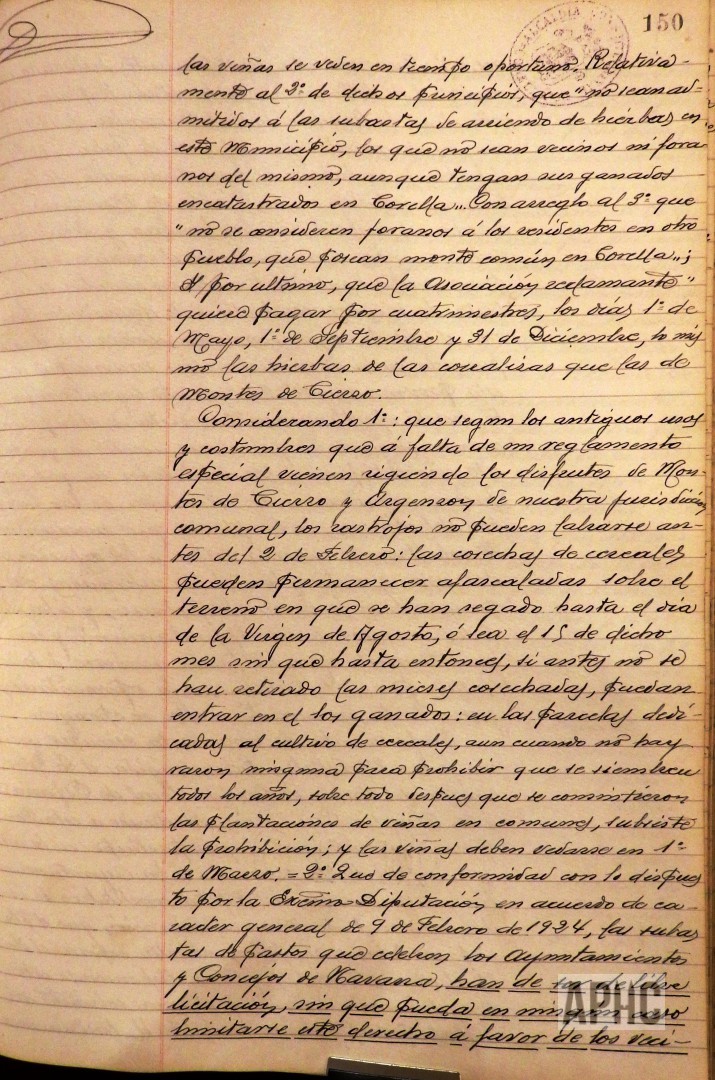 150
las viñas se veden en tiempo oportuno. Relativa-
mente al 2º de dichos principios, que "no sean ad-
mitidos á las subastas de arriendo de hierbas en
este Municipio, los que no sean vecinos ni fora-
nos del mismo, aunque tengan sus ganados
encatastrados en Corella". Con arreglo al 3º que
"no se consideren foranos á los residentes en otro
pueblo, que posean monte común en Corella";
Y por ultimo, que la Asociación reclamante"
quiere pagar por cuatrimestres, los días 1º de
Mayo, 1º de Septiembre y 31 de Diciembre, lo mis
mo las hierbas de las corralizas que las de
Montes de Cierzo.
Considerando 1º: que segun los antiguos usos
y costumbres que á falta de un reglamento
especial vienen rigiendo los disfrutes de Mon-
tes de Cierzo y Argenzon de nuestra jurisdicción
comunal, los rastrojos no pueden labrarse an-
tes del 2 de Febrero: las cosechas de cereales
pueden permanecer afascaladas sobre el
terreno en que se han segado hasta el dia
de la Virgen de Agosto, ó sea el 15 de dicho
mes sin que hasta entonces, si antes no se
han retirado las mieses cosechadas, puedan
entrar en el los ganados: en las parcelas dedi-
cadas al cultivo de cereales, aun cuando no hay
razon ninguna para prohibir que se siembren
todos los años, sobre todo despues que se consintieron
las plantaciones de viñas en comunes, subsiste
la prohibición; y las viñas deben vedarse en 1º
de Marzo. = 2º Que de conformidad con lo dispues
to por la Excma Diputación en acuerdo de ca-
racter general de 9 de Febrero de 1924, las subas
tas de pastos que celebren los Ayuntamientos
y Concejos de Navarra, han de ser de libre
licitación, sin que pueda en ningun caso
limitarse este derecho á favor de los veci-
APHC